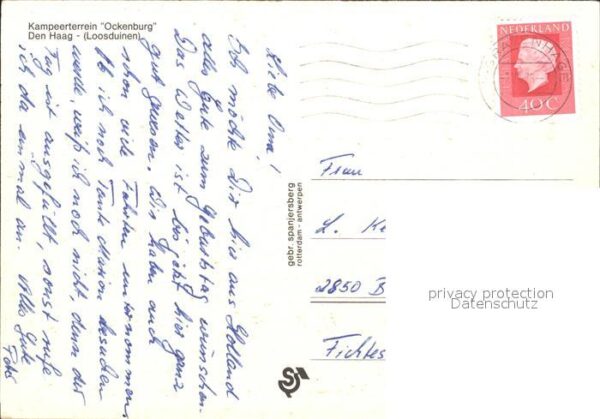 Kampeerterrein "Ockenburg"
Den Haag - (Loosduinen)
Liebe Oma!
Ich möchte Dir hier aus Holland
alles Gute zum Geburtstag wünschen.
Das Wetter ist bis jetzt hier ganz
gut gewesen. Wir haben auch
schon viele Fahrten unternommen,
Ob ich noch Tante Marion besuchen
werde, weiß ich noch nicht denn der
Tag ist ausgefüllt, sonst rufe
ich da einmal an. Alles Gute
gebr. spanjersberg
rotterdam - antwerpen
NEDERLAND
40c
Frau
L. Ke
2850 B
Fichtes
privacy protection
Datenschutz